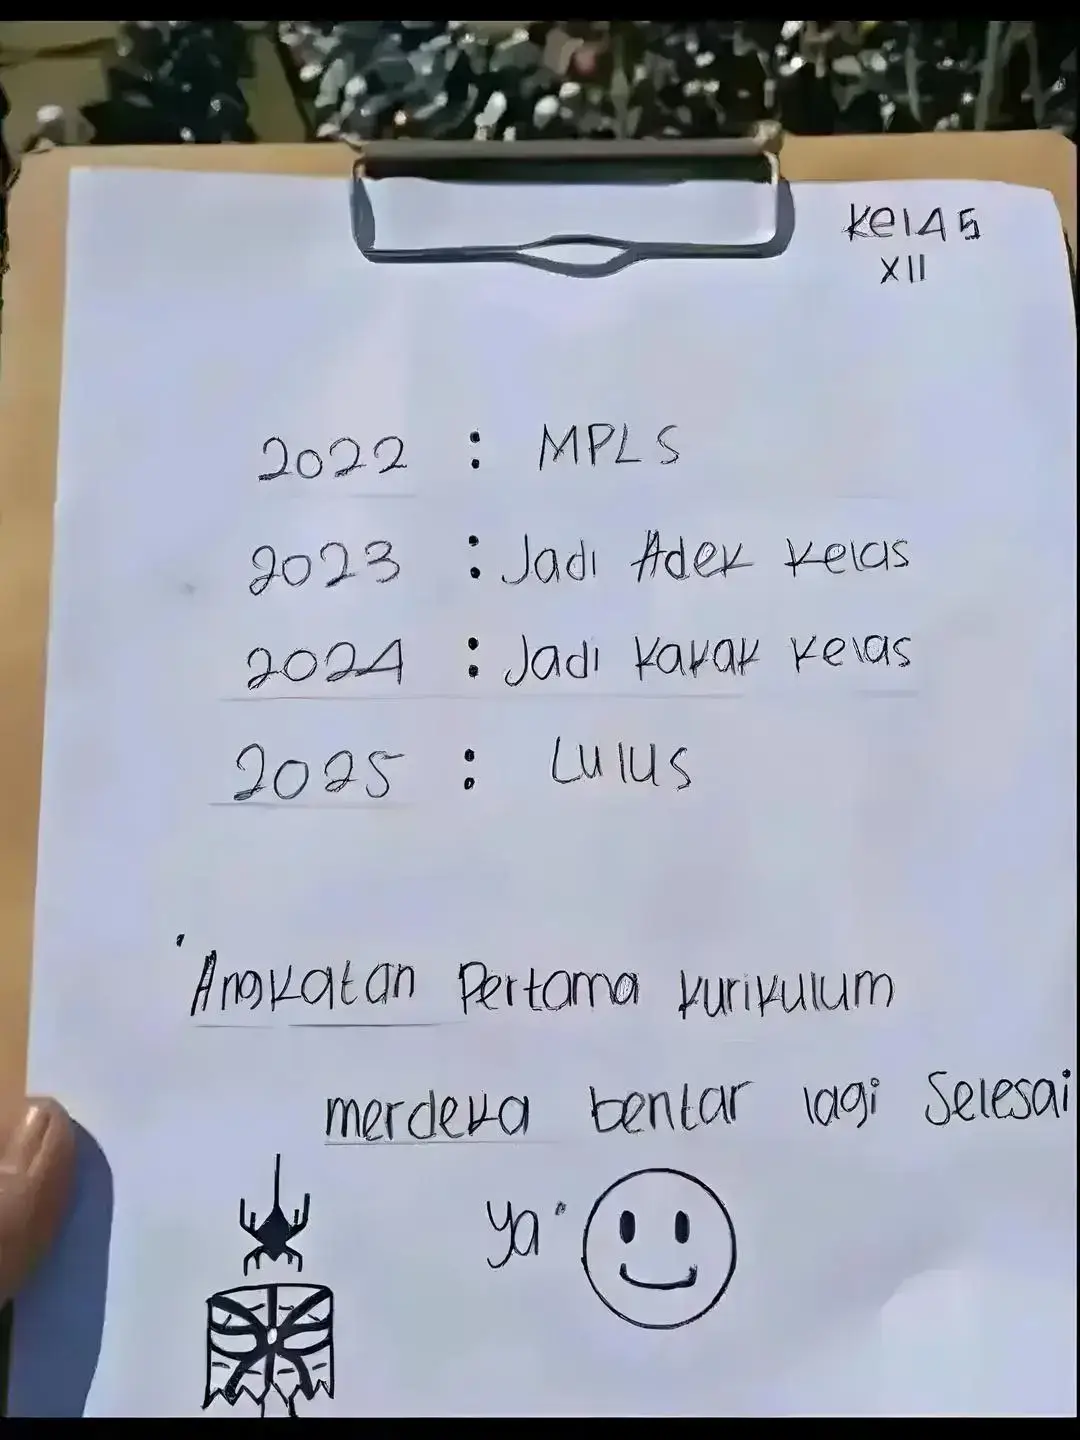 Kelas
XII
2022 : MPLS
2023 : Jadi Adek kelas
2024 : Jadi kakak kelas
2025 : Lulus
"Angkatan Pertama kurikulum
merdeka bentar lagi Selesai
ya"